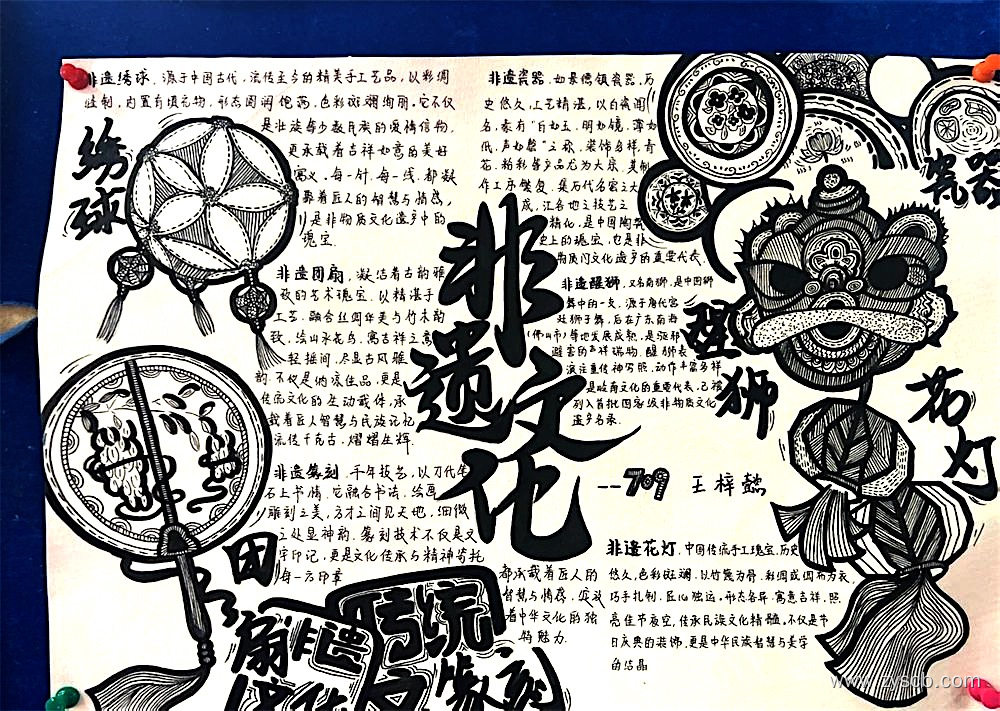 非遗绣球，源于中国古代，流传至今的精美手工艺品，以彩绸
缝制，内置有填充物，形态圆润饱满，色彩斑斓绚丽，它不仅
是壮族等少数民族的爱情信物，
更承载着吉祥如意的美好
寓义，每一针，每一线，都凝
聚着匠人的智慧与情感，
是非物质文化遗产中的
瑰宝。
绣球
非遗团扇，凝结着古韵雅
致的艺术瑰宝，以精湛手
工艺，融合丝绸华美与竹木韵
致，绘山水花鸟，寓吉祥之意
轻摇间，尽显古风雅
韵，不仅是纳凉佳品，更是
传统文化的生动载体，承
载着匠人智慧与民族记忆
流传千古，熠熠生辉。
团扇
非遗篆刻，千年技艺，以刀代笔
石上书情，它融合书法、绘画
雕刻之美，方寸之间见天地，细微
之处显神韵，篆刻技术不仅是文
字印记，更是文化传承与精神寄托
每一方印章
都承载着匠人的
智慧与情感，
着中华文化的独
特魅力。
非遗
传统
篆刻
非遗文化
--709 王梓懿
非遗瓷器，如景德镇瓷器，历
史悠久，工艺精湛，以白瓷闻
名，素有"白如玉，明如镜，薄如
纸，声如磬"之称，装饰多样，青
花、粉彩等产品尤为大众，其制
作工序繁复，集历代名窑之大
成，汇各地之技艺之
精化，是中国陶瓷
史上的瑰宝，也是非
物质文化遗产的重要代表。
瓷器
非遗醒狮，又名南狮，是中国狮
舞中的一支，源于唐代宫
廷狮子舞，后在广东南海
(佛山市)等地发展成熟，是驱邪
避害的吉祥瑞物，醒狮表
演注重传神写照，动作丰富多样
是岭南文化的重要代表，已被
列入首批国家级非物质文化
遗产名录。
醒狮
花灯
非遗花灯，中国传统手工瑰宝，历史
悠久，色彩斑斓，以竹篾为骨，彩绸或绢布为衣，
巧手扎制，匠心独运，形态各异，寓意吉祥，照
亮佳节夜空，传承民族文化精髓，不仅是节
日庆典的装饰，更是中华民族智慧与美学
的结晶
www.zysco.com